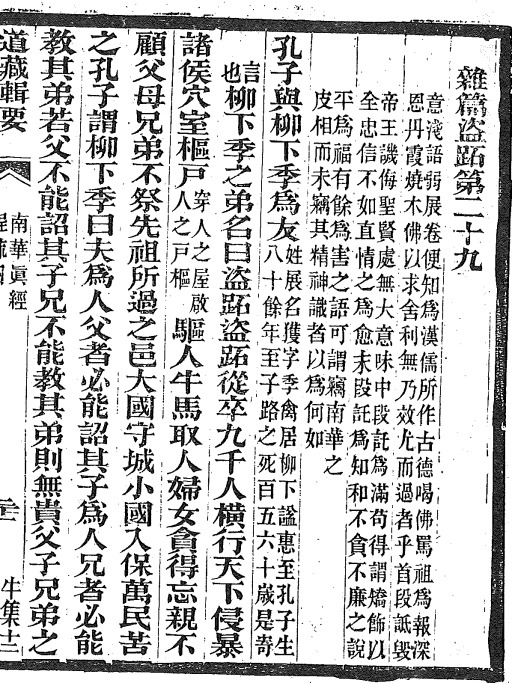 雜篇盜跖第二十九
意淺語弱展卷便知爲漢儒所作古德喝佛罵祖爲報深
恩丹霞燒木佛以求舍利無乃效尤而過者乎首段詆毀
帝王譏侮聖賢處無大意味中段託爲滿苟得謂矯飾以
全忠信不如直情之爲愈末段託爲知和不貪不廉之說
平爲福有餘爲害之語可謂竊南華之
皮相而未竊其精神識者以爲何如
孔子與柳下季爲友姓展名獲字季禽居柳下諡惠至孔子生
八十餘年至子路之死百五六十歲是寄
言
也柳下季之弟名曰盜跖盜跖從卒九千人橫行天下侵暴
諸侯穴室樞戶穿人之屋啟
人之戶樞驅人牛馬取人婦女貪得忘親不
顧父母兄弟不祭先祖所過之邑大國守城小國入保萬民苦
之孔子謂柳下季曰夫爲人父者必能詔其子爲人兄者必能
教其弟若父不能詔其子兄不能教其弟則無貴父子兄弟之
道藏輯要
南華眞經
牛集十二